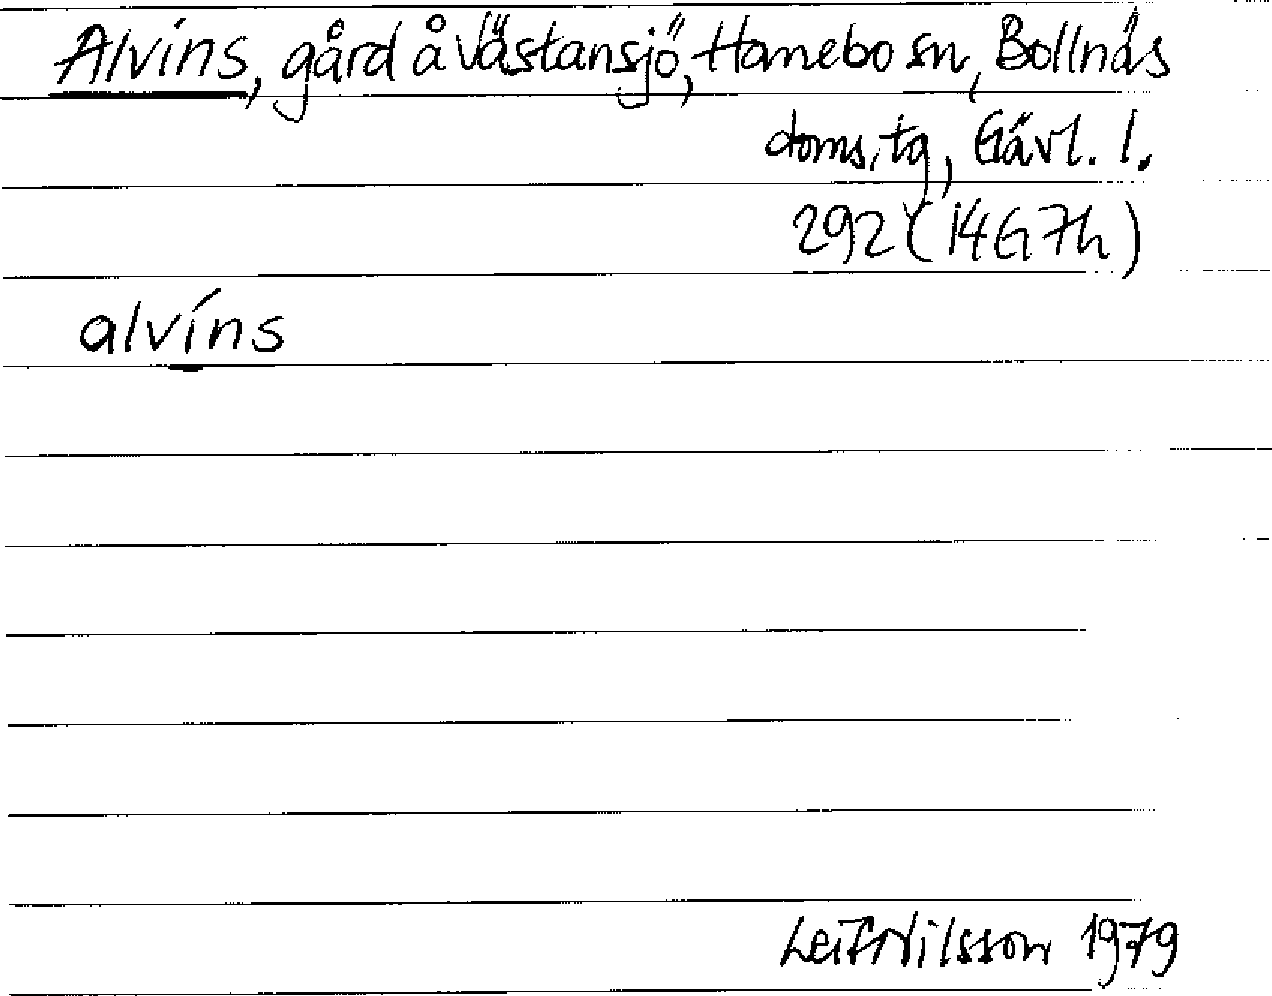 Alvins, gård å Västansjö, Hanebo sn, Bollnäs
doms.tg, Gävl. l.
292 (14G7h)
alvíns
Leif Nilsson 1979